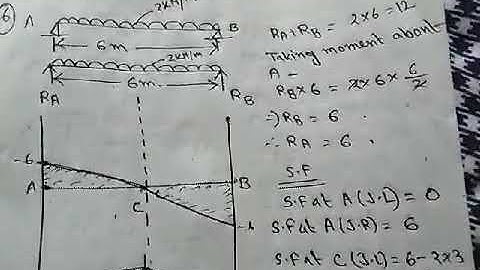 6
2kN/m
A
B
6m
2kN/m
6m
RA
RB
6
A
B
C
RA+RB = 2x6=12
Taking moment about
A -
RB x 6 = 2x6x6/2
=) RB = 6
∴ RA = 6
S.F
S.F at A (J.L) = 0
S.F at A (J.R) = 6
S.F at C (J.L) = 6-2x3